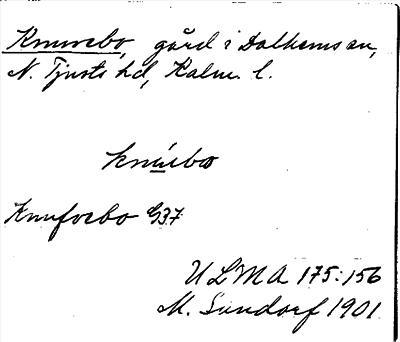 Knurebo, gård i Dalhems sn,
N. Tjusts hd, Kalm. l.
Knufvebo G37
ULMA 175:156
M. Lundorf 1901